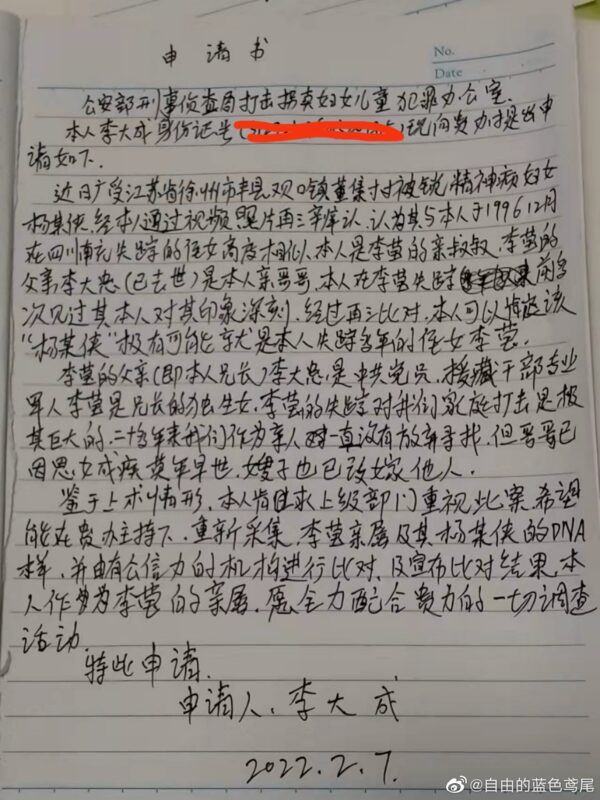 申请书
No.
Date
公安部刑事侦查局打击拐卖妇女儿童犯罪办公室.
本人李大成身份证号 现向贵办提出申
请如下.
近日广受江苏省徐州市丰县欢口镇董集村被锁精神病妇女
杨某侠.经本人通过视频.照片再三辨认.认为其与本人于1996 12月
在四川南充失踪的侄女高度相似.本人是李莹的亲叔叔.李莹的
父亲李大忠(已去世)是本人亲哥哥.本人在李莹失踪前多
次见过其本人对其印象深刻.经过再三比对.本人可以确定该
"杨某侠"极有可能就是本人失踪多年的侄女李莹.
李莹的父亲(即本人兄长)李大忠.是中共党员.援藏干部专业
军人李莹是兄长的独生女.李莹的失踪对我们家庭打击是极
其巨大的.二十多年来我们作为亲人一直没有放弃寻找.但哥哥已
因思女成疾英年早世.嫂子也已改嫁他人.
鉴于上术情形.本人肯求上级部门重视此案.希望
能在贵办主持下.重新采集.李莹亲属及其杨某侠的DNA
样.并由有公信力的机构进行比对.及宣布比对结果.本
人作为李莹的亲属.愿全力配合贵力的一切调查
活动.
特此申请.
申请人.李大成
2022.2.7.
@自由的蓝色鸢尾